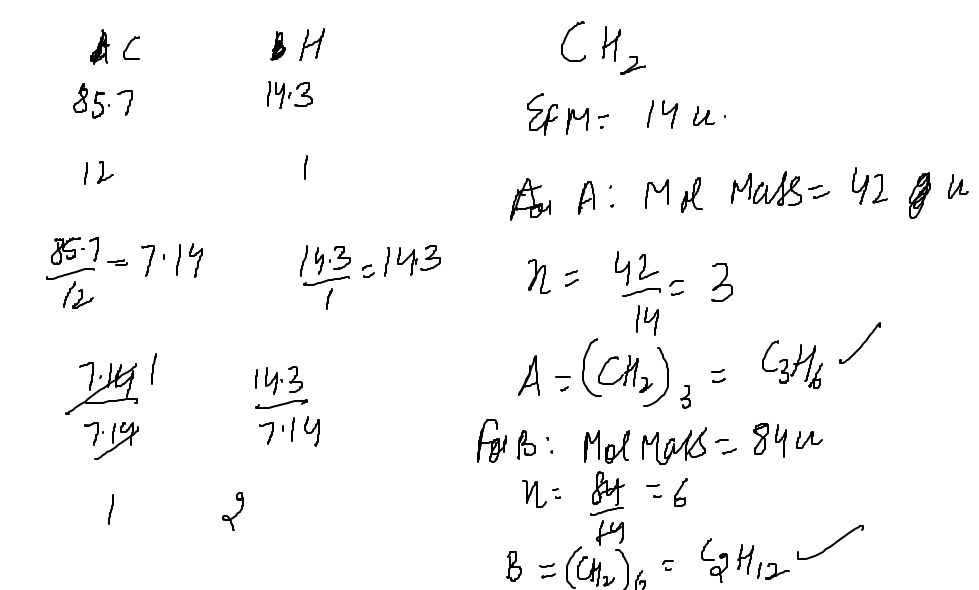 C H
85.7 14.3
12 1
85.7/12 = 7.14 14.3/1 = 14.3
7.14/7.14 1 14.3/7.14
1 2
CH₂
EFM = 14 u.
For A: Mol Mass = 42 u
n = 42/14 = 3
A = (CH₂)₃ = C₃H₆ ✓
For B: Mol Mass = 84 u
n = 84/14 = 6
B = (CH₂)₆ = C H₁₂ ✓